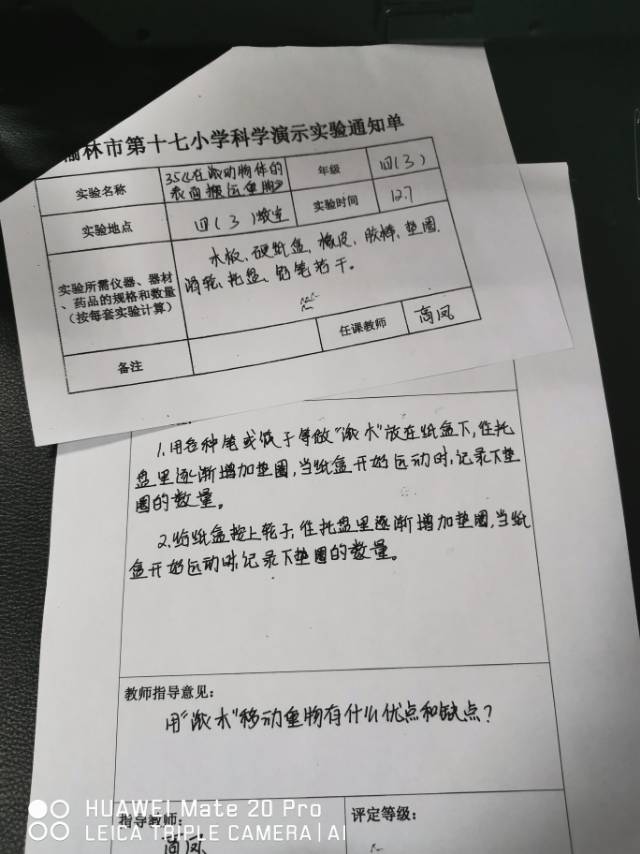 榆林市第十七小学科学演示实验通知单
实验名称
35《在滚动物体的
表面搬运重物》
年级
四(3)
实验地点
四(3)教室
实验时间
12.7
实验所需仪器、器材
、药品的规格和数量
(按每套实验计算)
木板、硬纸盒、橡皮、胶棒、垫圈、
滑轮、托盘、铅笔若干。
备注
任课教师
高凤
1.用各种笔或筷子等做"滚木"放在纸盒下,往托
盘里逐渐增加垫圈,当纸盒开始运动时,记录下垫
圈的数量。
2.给纸盒按上轮子,往托盘里逐渐增加垫圈,当纸
盒开始运动时,记录下垫圈的数量。
教师指导意见:
用"滚木"移动重物有什么优点和缺点?
指导教师:
高凤
评定等级:
HUAWEI Mate 20 Pro
LEICA TRIPLE CAMERA | AI